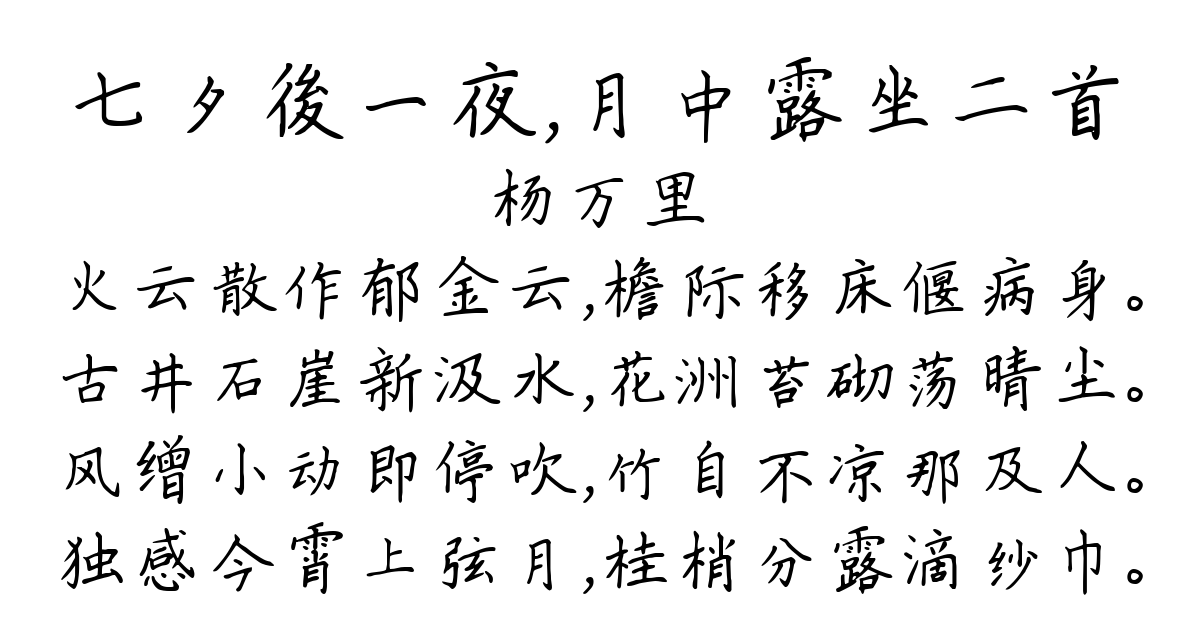 七夕後一夜,月中露坐二首
杨万里
火云散作郁金云,檐际移床偃病身。
古井石崖新汲水,花洲苔砌荡晴尘。
风缯小动即停吹,竹自不凉那及人。
独感今霄上弦月,桂梢分露滴纱巾。